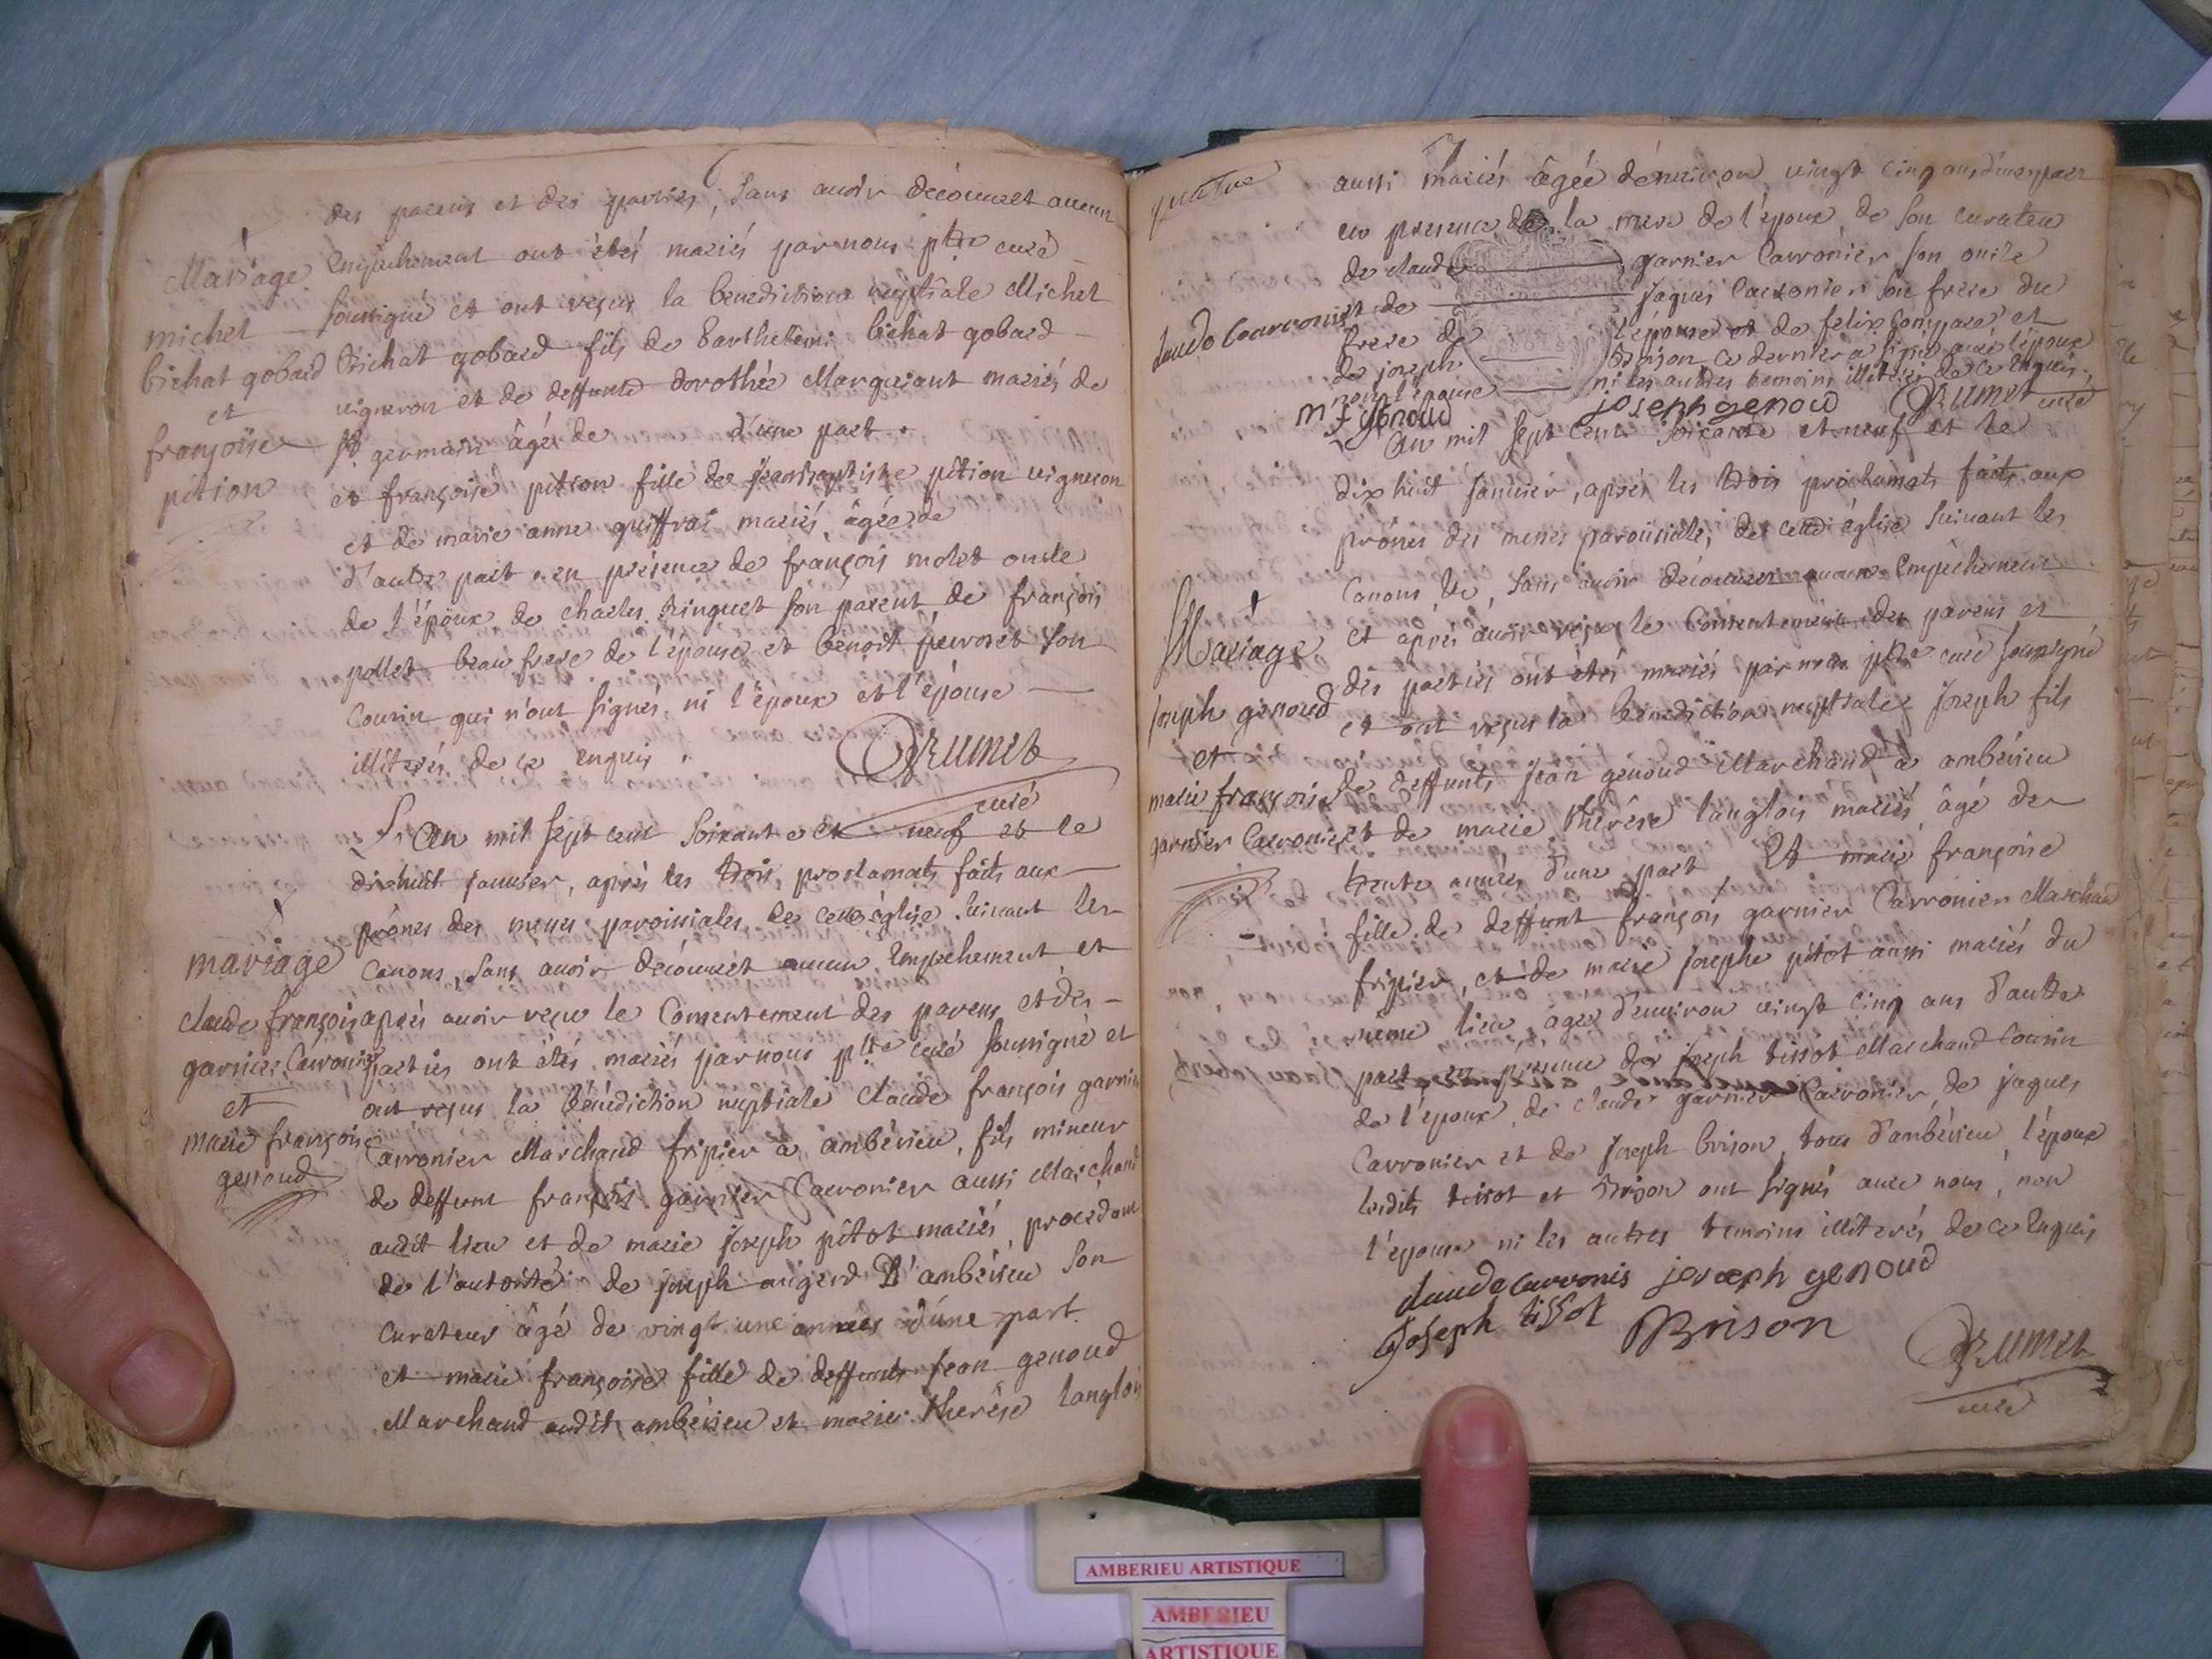 6
des parens et des parties, sans avoir decouvert aucun
Empechement ont étés mariés par nous ptre curé
soussigné et ont reçus la benediction nuptiale Michel
bichat gobard fils de barthelemi bichat gobard
vigneron et de deffunte dorothée Marguerant mariés de
st germain âgé de d'une part.
et françoise pition fille de jeanbaptiste pition vigneron
et de marie anne guiffrai mariés âgée de
d'autre part. en présence de françois molet oncle
de l'époux de charles ringuet son parent, de françois
pollet beau frere de l'épouse et benoit son
Cousin qui n'ont signés ni l'époux et l'épouse
illiterés de ce enquis.
Mariage
michel
bichat gobard
et
françoise
pition
DRumet
curé
L'An mil sept cent soixante et neuf et le
dixhuit janvier, après les trois proclamats faits aux
prônes des messes paroissiales de cette église suivant les
Canons, sans avoir decouvert aucun Empechement et
après avoir reçu le Consentement des parens et des
parties ont étés mariés par nous ptre curé soussigné et
ont reçus la bénédiction nuptiale claude françois garnier
Carronier Marchand fripier à ambérieu, fils mineur
de deffunt françois garnier Carronier aussi Marchand
audit lieu et de marie joseph pitot mariés, procedant
de l'autorité de joseph augerd D'ambérieu son
Curateur âgé de vingt une années d'une part.
et marie françoise fille de deffunts jean genoud
Marchand audit ambérieu et marie thérèse langlois
mariage
claude françois
garnier Carronier
et
marie françoise
genoud
7
quatre
aussi mariés âgée d'environ vingt cinq ans d'autre part
en presence de la mere de l'époux de son curateur
de claude garnier Carronier son oncle
et de jaques Carronier son frere du
frere de l'épouse et de felix compare et
de joseph Brison ce dernier a signé avec l'époux
non l'épouse ni les autres temoins illiterés de ce Enquis.
claude Carronier
m f genoud
joseph genoud
DRumet curé
L'An mil sept cent soixante et neuf et le
dix huit janvier, après les trois proclamats faits aux
prônes des messes paroissiales de cette église suivant les
Canons &c, sans avoir découvert aucun Empêchement
et après avoir reçu le Consentement des parens et
des parties ont étés mariés par nous ptre curé soussigné
et ont reçus la bénédiction nuptiale joseph fils
de deffunts jean genoud Marchand à ambérieu
et de marie thérèse langlois mariés âgé de
trente années d'une part Et marie françoise
fille de deffunt françois garnier Carronier Marchand
fripier, et de marie josephe pitot aussi mariés du
même lieu, âgée d'environ vingt cinq ans d'autre
part, en présence de joseph tissot Marchand Cousin
de l'époux, de claude garnier Carronier, de jaques
Carronier et de joseph brison, tous d'ambérieu, l'époux
lesdits tissot et Brison ont signés avec nous, non
l'épouse ni les autres temoins illiterés de ce Enquis
Mariage
joseph genoud
et
marie françoise
garnier Carronier
claude Carronis joseph genoud
joseph tissot
Brison
DRumet
curé
AMBERIEU ARTISTIQUE
AMBERIEU
ARTISTIQUE